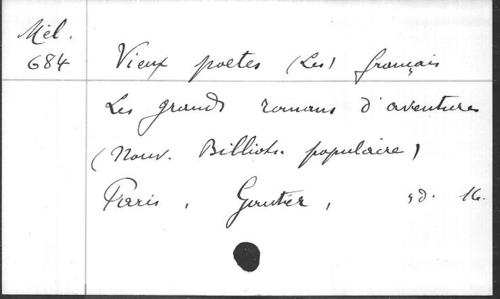 Mél.
684
Vieux poètes (Les) français
Les grands romans d'aventures
(Nouv. Biblioth. populaire)
Paris, Gautier, sd. 16.